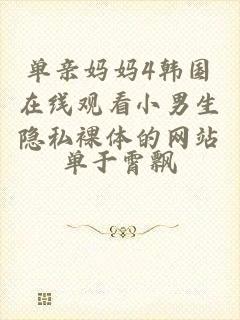 单亲妈妈4韩国
在线观看小男生
隐私裸体的网站
单于霄飘